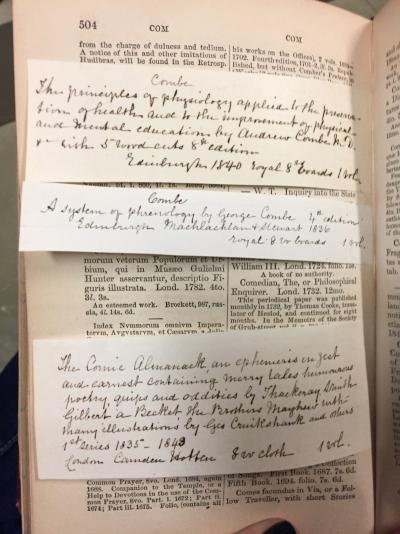 504
COM
COM
from the charge of dulness and tedium.
A notice of this and other imitations of
Hudibras, will be found in the Retrosp.
his works on the Offices, 2 vols.
1702. Fourth edition, 1701-2,
lished, but without Comber's
Combe
The principles of physiology applied to the preserva-
tion of health and to the improvement of physical
and mental education by Andrew Combe M.D.
&c with 5 wood cuts 8th edition
Edinburgh 1840 royal 8º boards 1 vol.
W. T. Inquiry into the State
Combe
A system of phrenology by George Combe 4th edition
Edinburgh Machlachlan & Stewart 1836
royal 8vo boards 1 vol.
morum veterum Populorum et Ur-
bium, qui in Museo Gulielmi
Hunter asservantur, descriptio Fi-
guris illustrata. Lond. 1782. 4to.
3l. 3s.
An esteemed work. Brockett, 987, rus-
sia, 4l. 14s. 6d.
Index Nummorum omnium Impera-
torum, Augustarum, et Cæsarum
William III. Lond.
A book of no authority.
Comedian, The, or Philosophical
Enquirer. Lond. 1732. 12mo.
This periodical paper was published
monthly in 1732, by Thomas Cooke, trans-
lator of Hesiod, and continued for eight
months. In the Memoirs of the Society
of Grub-street
The Comic Almanack an ephemeris in jest
and earnest containing merry tales humourous
poetry, quips and oddities by Thackeray Smith
Gilbert a Becket the Brothers Mayhew with
many illustrations by Geo Cruikshank and others
1st series 1835-1843
London Camden Hotten 8vo cloth 1 vol.
Common Prayer, 8vo. Lond. 1694, again
1688. Companion to the Temple, or a
Help to Devotions in the use of the Com-
mon Prayer, 8vo. Part I. 1672; Part II.
1674; Part III. 1675. Folio, (containing all
Collection
of Songs. First Book. 1687. 7s. 6d.
Fifth Book. 1694. folio. 7s. 6d.
Comes facundus in Via, or a Fel-
low Traveller, with short Stories